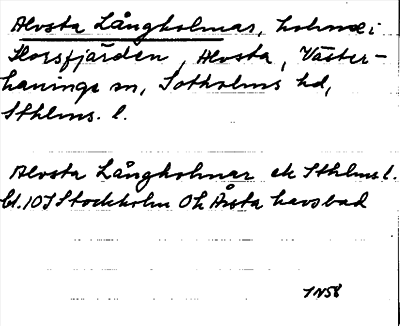 Alvsta Långholmar, holmar i
Horsfjärden, Alvsta, Väster-
haninge sn, Sotholms hd,
Sthlms. l.
Alvsta Långholmar ek Sthlms l.
bl. 10J Stockholm Oh Årsta havsbad
JN58